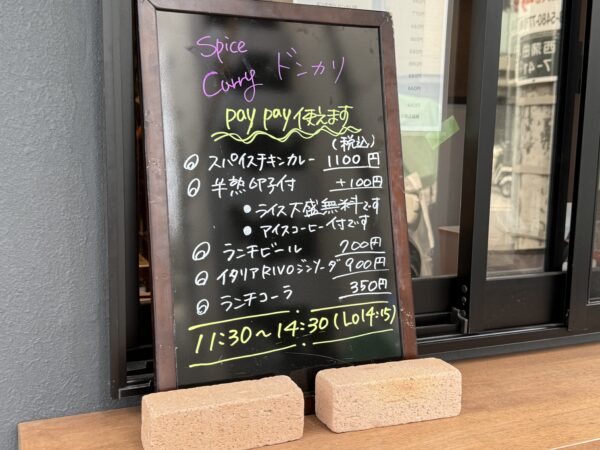 Spice
Curry ドンカリ
pay pay 使えます
(税込)
スパイスチキンカレー 1100円
半熟卵子付 +100円
• ライス大盛無料です
• アイスコーヒー付です
ランチビール 700円
イタリアRIVOジンソーダ 900円
ランチコーラ 350円
11:30〜14:30(LO14:15)
西蒲田